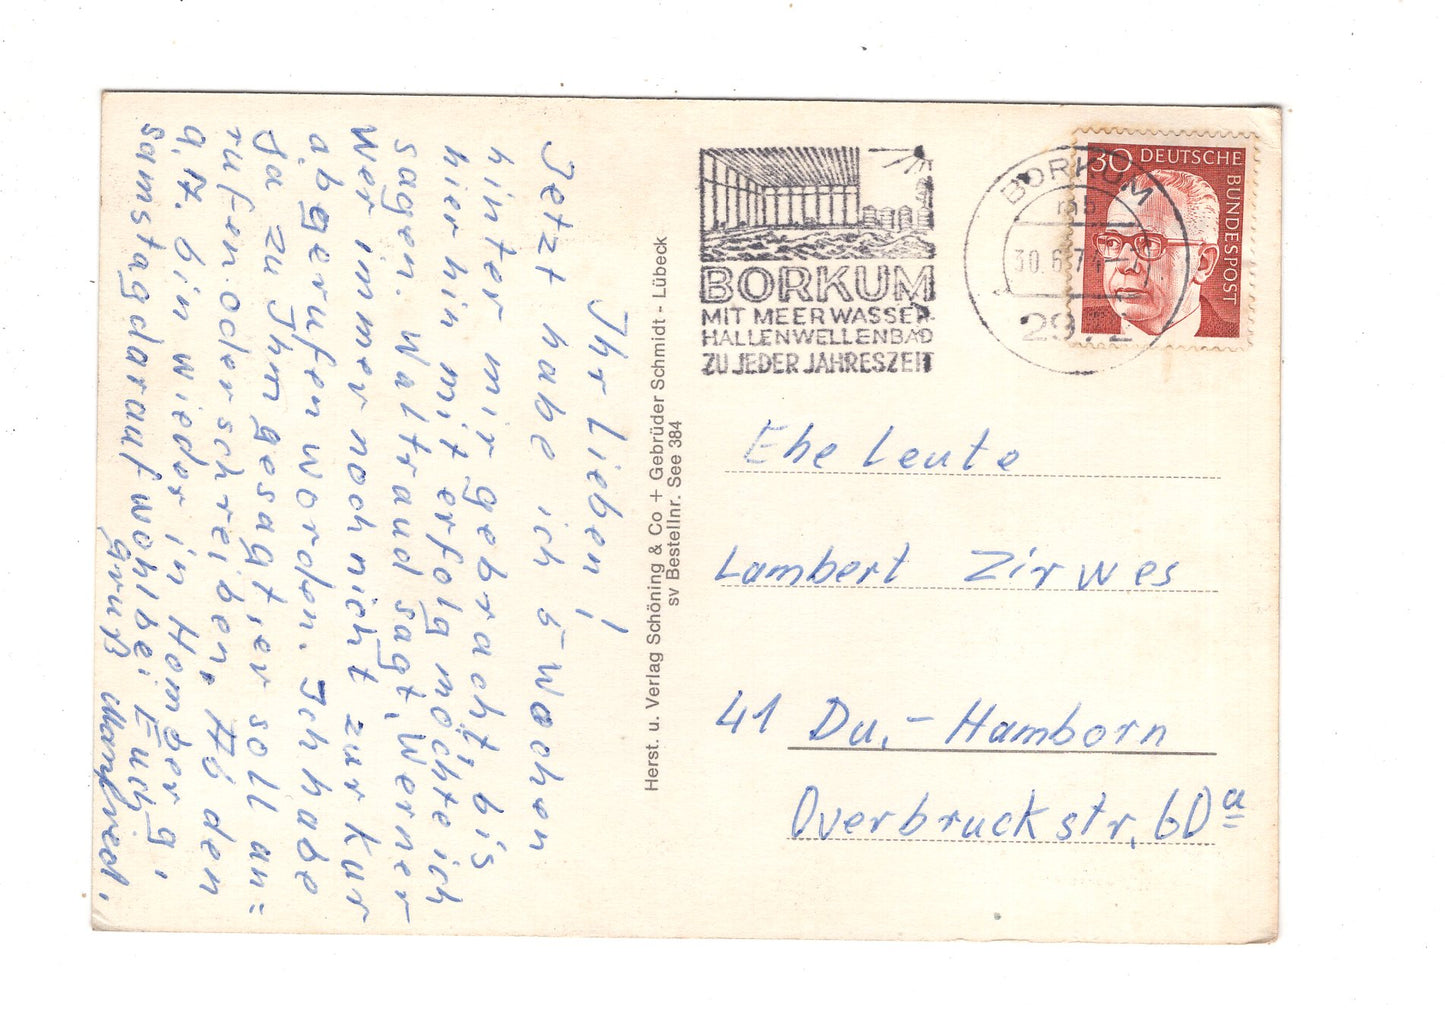 Ihr Lieben!
Jetzt habe ich 5 Wochen
hinter mir gebracht, bis
hier hin mit erfolg möchte ich
sagen. Waltraud sagt, Werner
wer immer noch nicht zur Kur
abgerufen worden. Ich habe
Ja zu Ihm gesagt, er soll an=
rufen oder schreiben. Ab den
9,7. bin wieder in Homberg,
samstag darauf wohl bei Euch,
gruß Manfred.
Herst. u. Verlag Schöning & Co + Gebrüder Schmidt - Lübeck
sv Bestellnr. See 384
BORKUM
MIT MEERWASSER-
HALLENWELLENBAD
ZU JEDER JAHRESZEIT
BORKUM
mb
30.6.74
2972
30 DEUTSCHE
BUNDESPOST
Ehe leute
Lambert Zirwes
41 Du,- Hamborn
Overbruckstr, 60a